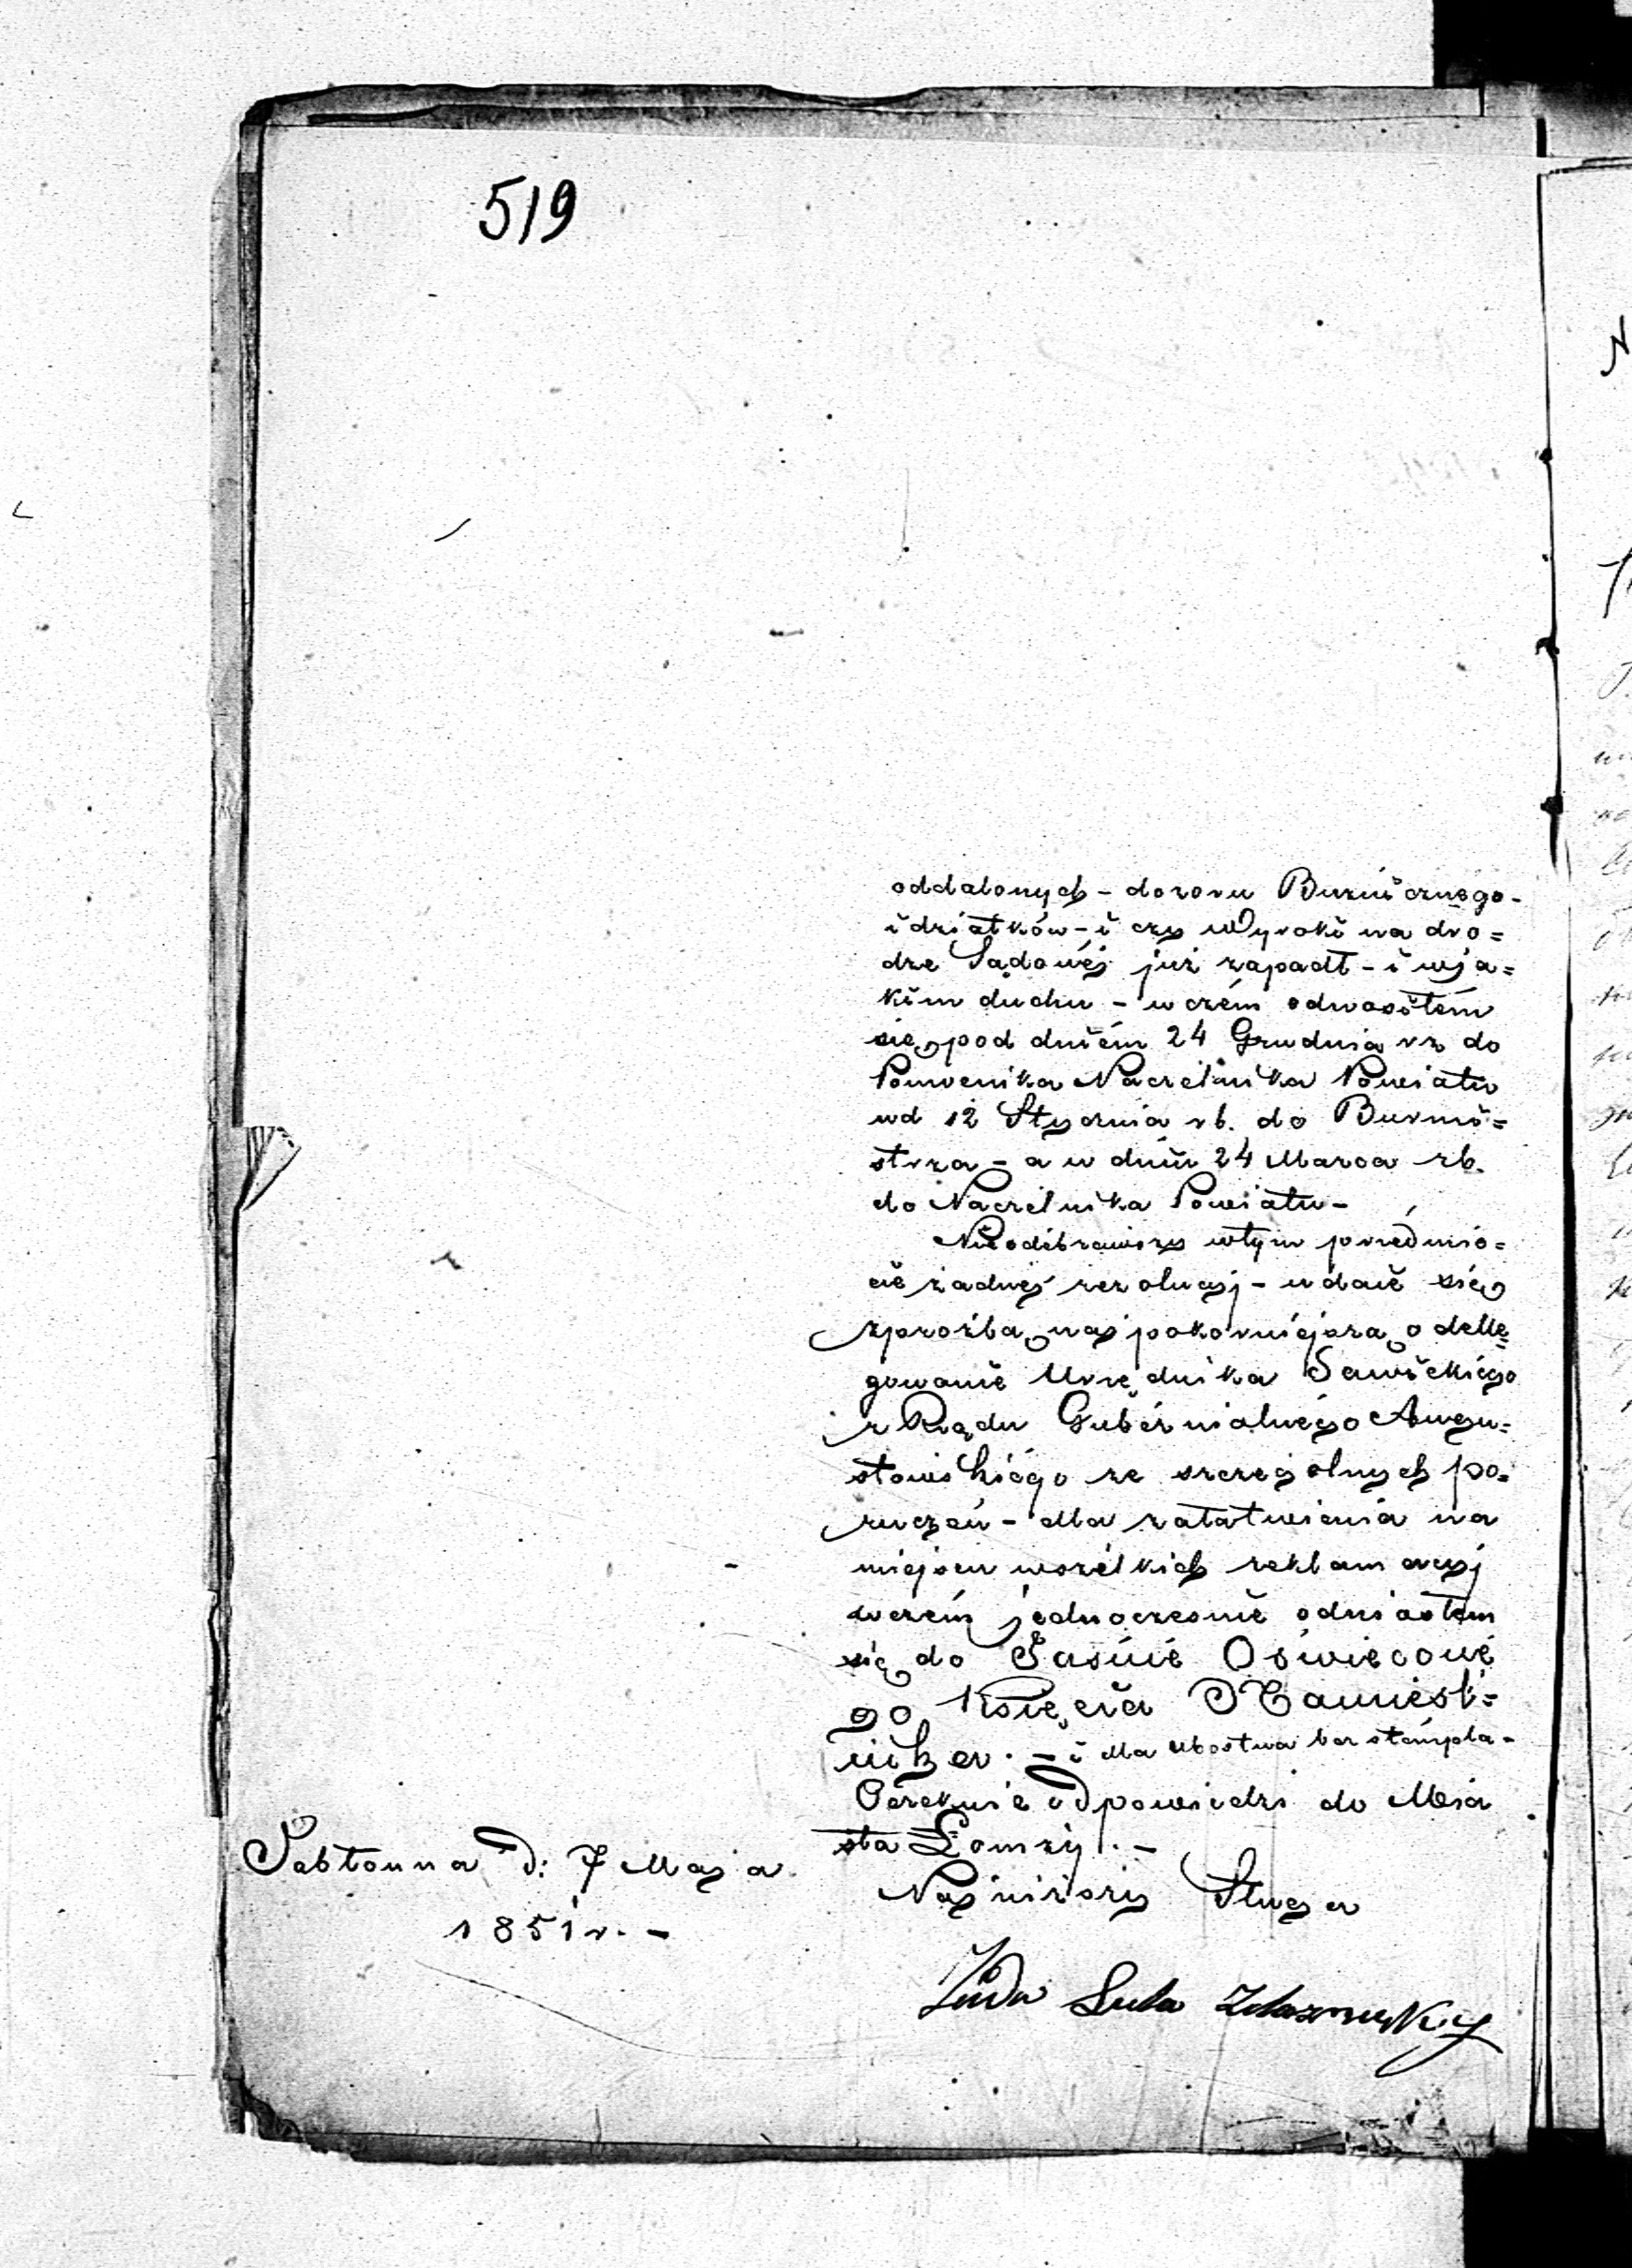 519
oddalonych - dozoru Buznicznego -
i dziatków - i czy Wyroki na dro=
dze Sądowéj już zapadł - i wja=
kim duchu - w czém odnosiłem
się pod dniém 24 Grudnia rz do
Pomocnika Naczelnika Powiatu
ud 12 Stycznia rb. do Burmi=
strza - a w dniu 24 Marca rb.
do Naczelnika Powiatu -
Nieodebrawszy wtym przedmio=
cie żadnej rezolucyj - udaie się
zprożbą najpokorniejszą o delle=
gowanie Urzędnika Sawickiego
z Rządu Gubérnialnego Augu=
stowskiégo ze szczegolnych po=
ruczeń - dla załatwienia na
miejscu wszélkich reklamacyj
wczém jednocześnie odniosłem
się do Jaśnie Oświecone
go Księcia Namiest=
nika. - i dla Ubostwa bez stémpla -
Oczekuie odpowiedzi do Mia
sta Łomży. -
Najniższy Sługa
Jabłonna D: 7 Maja
1851 r. -